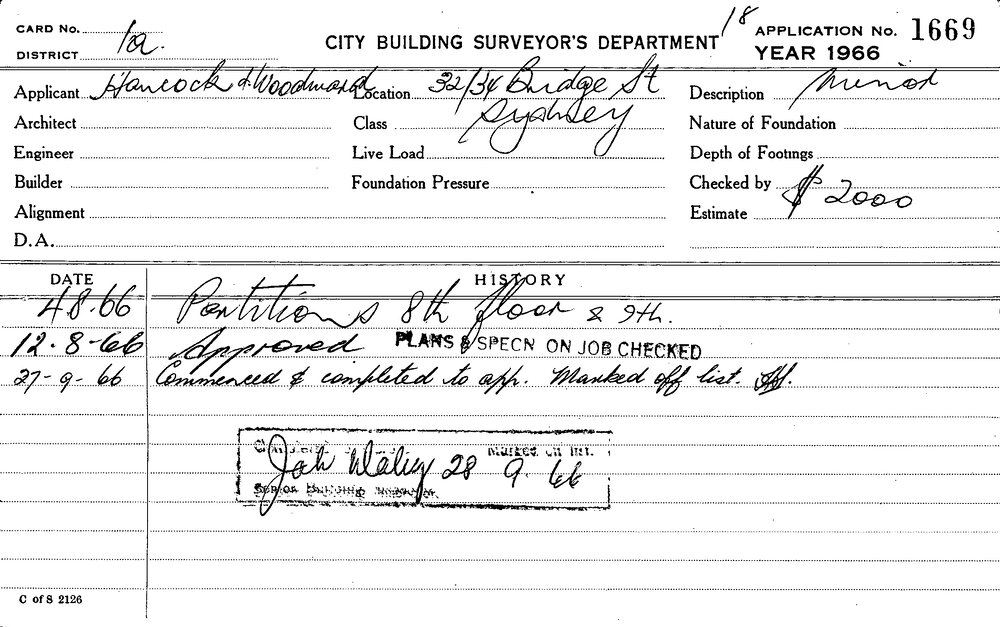 CARD No. 1a. CITY BUILDING SURVEYOR'S DEPARTMENT 18 APPLICATION No. 1669
DISTRICT YEAR 1966
Applicant Hancock & Woodward Location 32/34 Bridge St Description Minor
Architect Class Sydney Nature of Foundation
Engineer Live Load Depth of Footings
Builder Foundation Pressure Checked by
Alignment Estimate $ 2000
D.A.
DATE HISTORY
4 8.66 Partitions 8th floor & 9th.
12.8-66 Approved PLANS & SPECN ON JOB CHECKED
27-9-66 Commenced & completed to app. Marked off list.
28 9. 66
C of S 2126